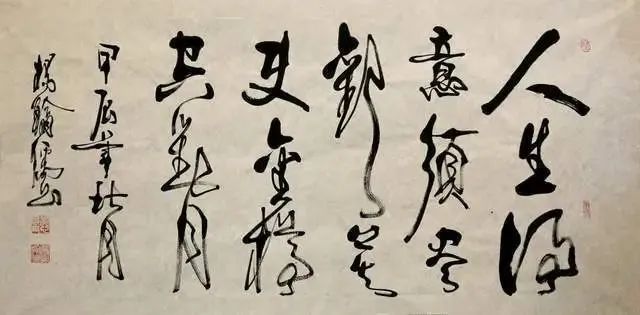 人生得
意須盡
歡莫
使金樽
空對月
甲辰年月
楊